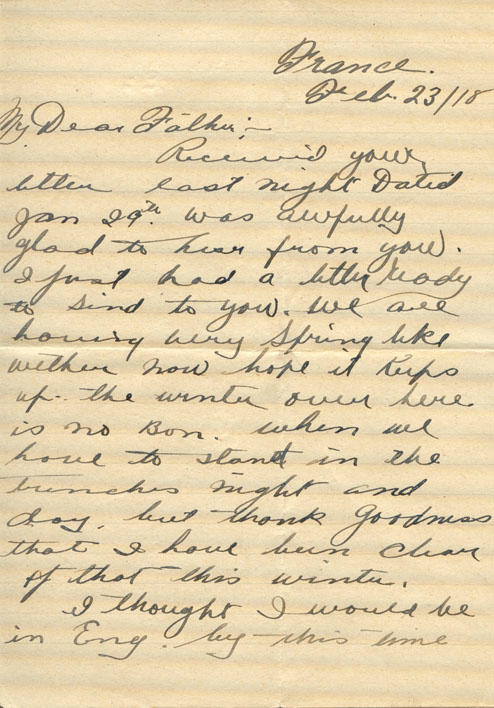 France.
Feb. 23/18
My Dear Father;-
Received your
letter last night Dated
Jan 29th. was awfully
glad to hear from you.
I just had a letter ready
to send to you. We are
having very Spring like
wether now hope it Keeps
up. the winter over here
is no Bon. when we
have to stand in the
trenches night and
day, but thank Goodness
that I have been clear
of that this winter.
I thought I would be
in Eng. by this time